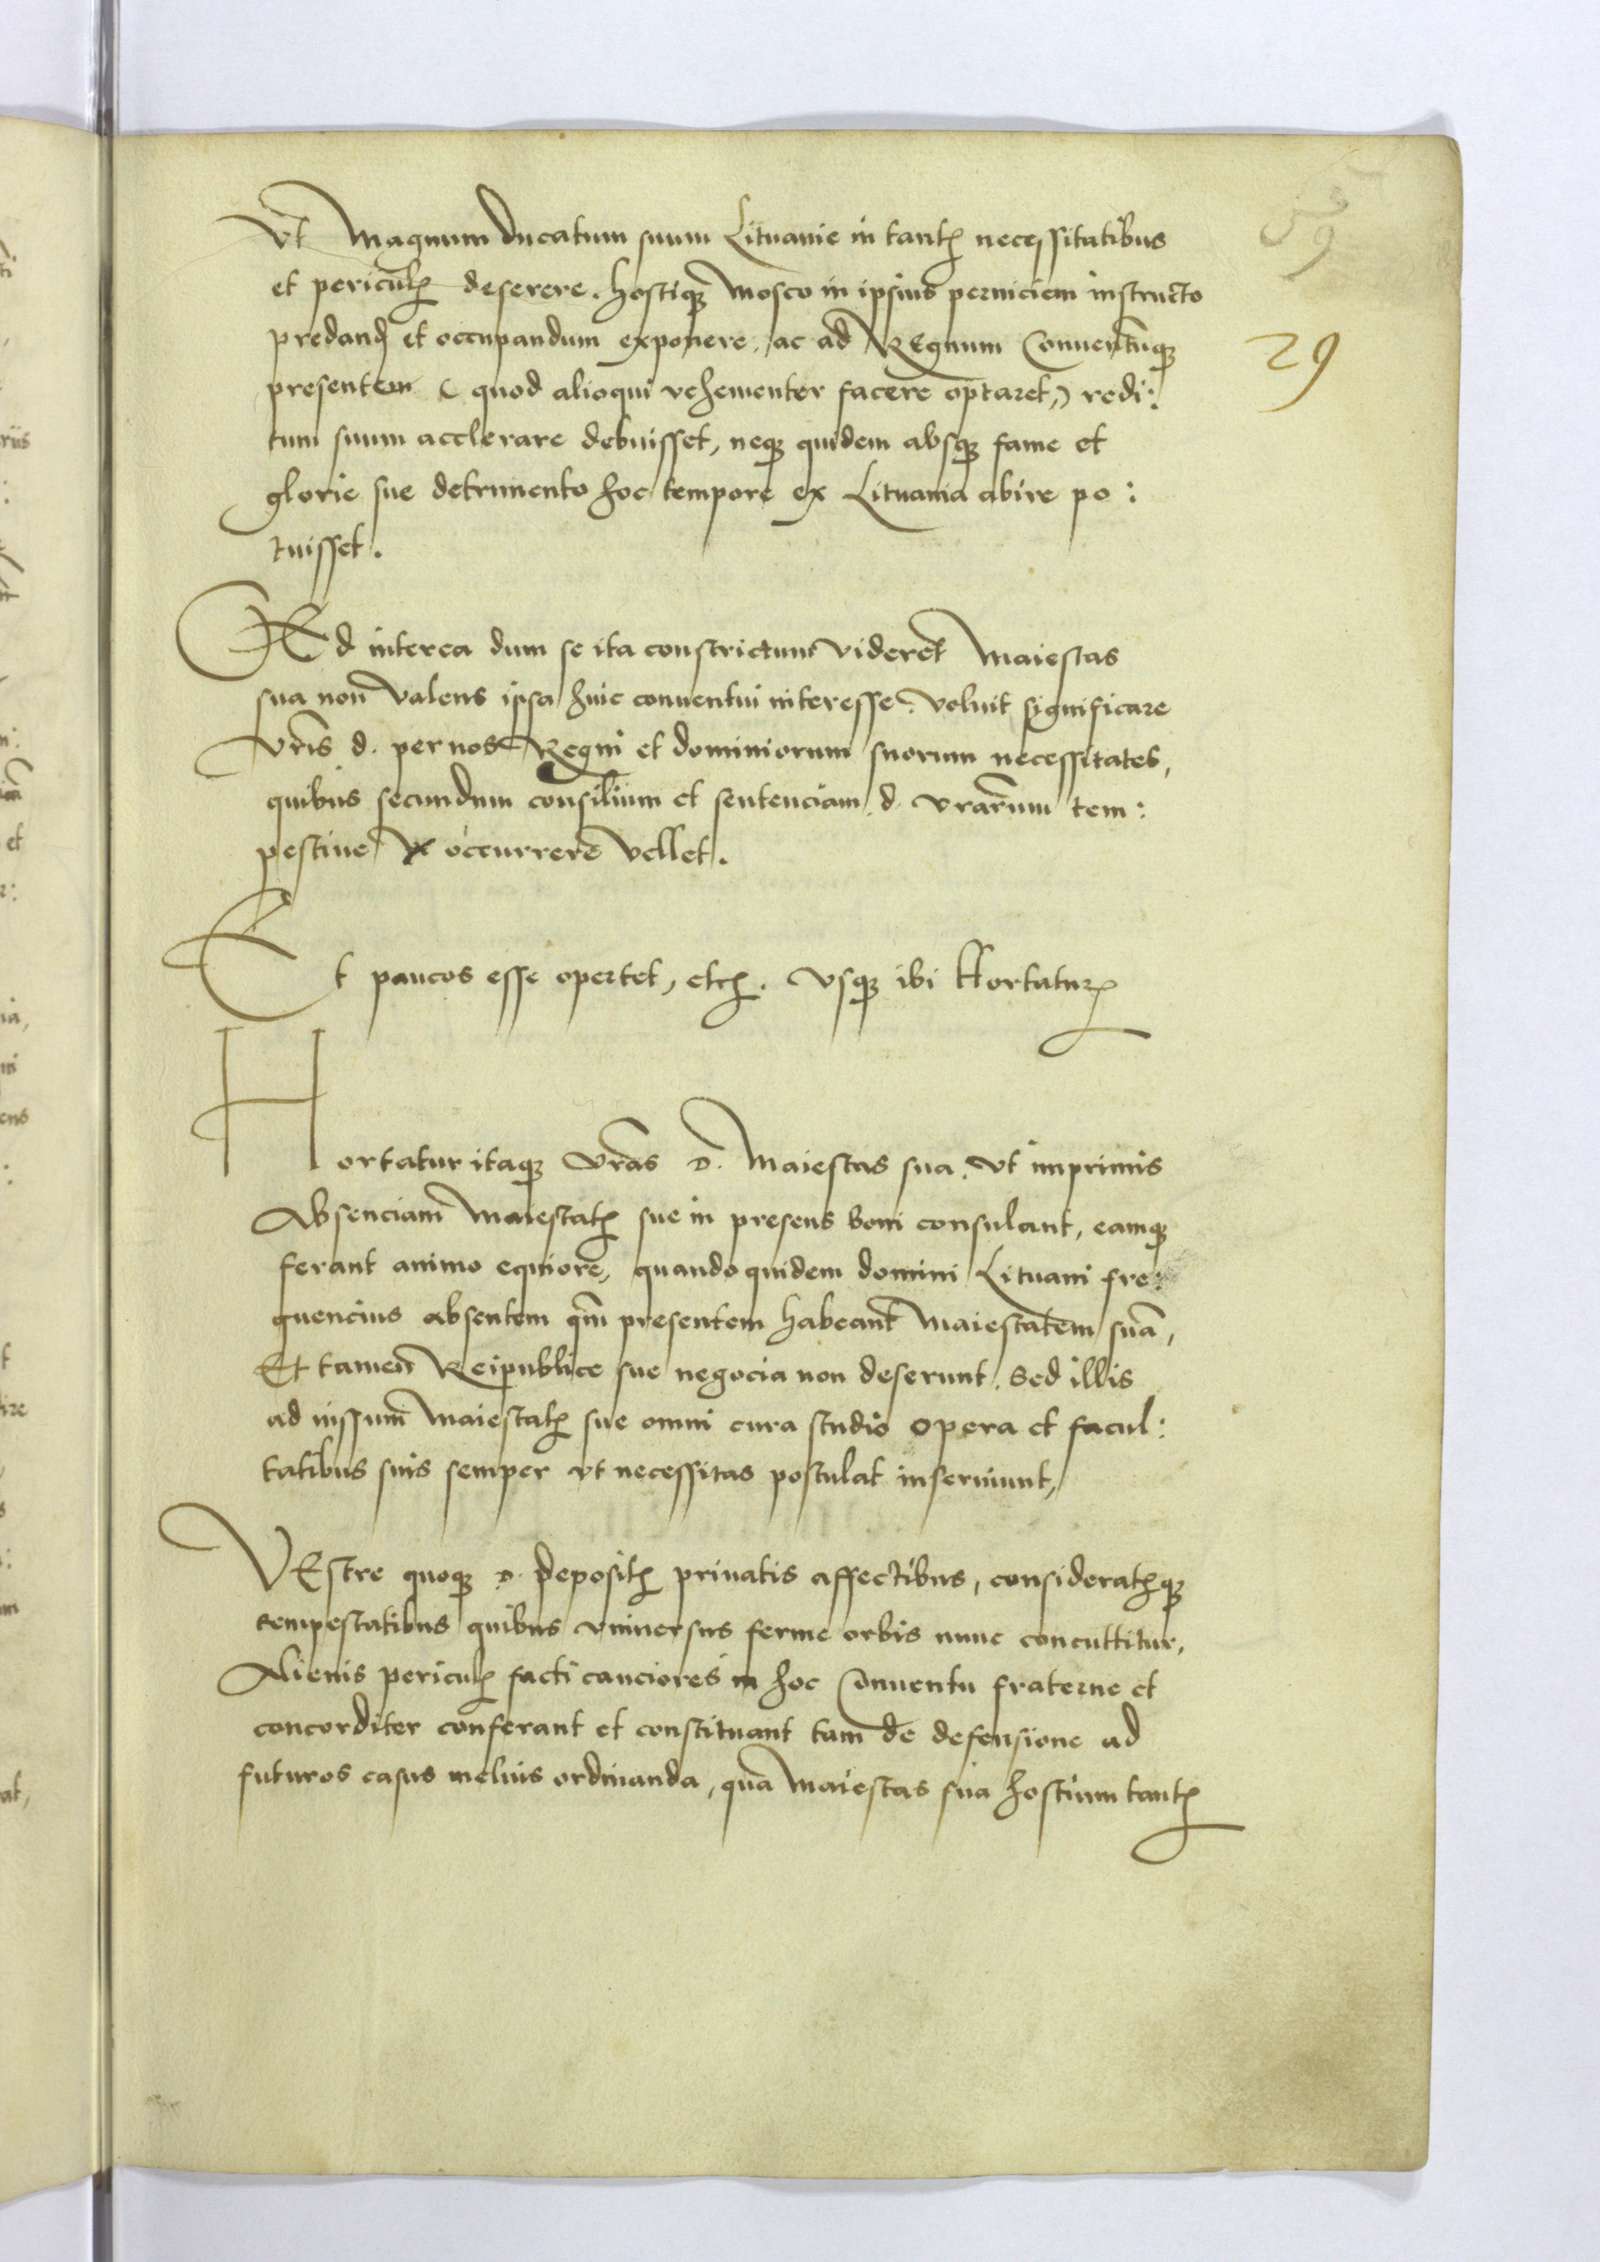 59
29
Vt Magnum ducatum suum Lituanie in tantꝭ necessitatibus
et periculꝭ deserere. hostiqꝫ Mosco in ipsius perniciem instructo
predandũ et occupandum exponere, ac ad Regnum Conuentũqꝫ
presentem ( quod alioqui vehementer facere optaret,) redi:
tum suum acclerare debuisset, neqꝫ quidem absqꝫ fame et
glorie sue detrimento hoc tempore ex Lituania abire po:
tuisset.
Ed interea dum se ita constrictum videret Maiestas
sua non valens ipsa huic conuentui interesse. voluit significare
vr̃is d. per nos Regni et dominiorum suorum necessitates,
quibus secundum consilium et sentenciam d. vrarum tem:
pestiue occurrere vellet.
Et paucos esse opertet, etcꝭ. vsqꝫ ibi Hortaturꝭ
Hortatur itaqꝫ vr̃as D. Maiestas sua. vt imprimis
Absenciam Maiestatꝭ sue in presens boni consulant, eamqꝫ
ferant animo equiore, quando quidem domini Lituani fre:
quencius absentem qm̃ presentem habeant Maiestatem suã,
Et tamen Reipublice sue negocia non deserunt. Sed illis
ad iussum Maiestatꝭ sue omni cura studio opera et facul:
tatibus suis semper vt necessitas postulat inseruiunt,
VEstre quoqꝫ D. depositꝭ priuatis affectibus, consideratꝭqꝫ
tempestatibus quibus vniuersus ferme orbis nunc concuttitur,
Alienis periculꝭ facti cauciores in hoc Conuentu fraterne et
concorditer conferant et constituant tam de defensione ad
futuros casus melius ordinanda, quã Maiestas sua hostium tantꝭ